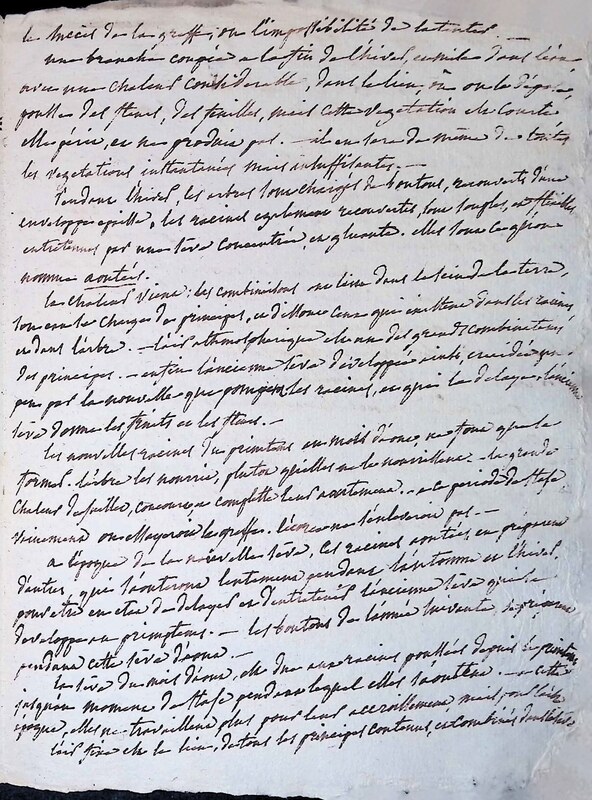 le succès de la greffe, ou l'impossibilité de la tenter. —
une branche coupée a la fin de l'hiver, et mise dans l'eau
avec une chaleur considérable, dans le lieu, où on la dépose,
pousse des fleurs, des feuilles, mais cette vegetation est courte
elle périt, et ne produit pas. — il en sera de même de toutes
les vegetations instantanées mais insuffisantes. —
Pendant l'hiver, les arbres sont chargés de boutons, recouverts d'une
enveloppe épaisse, les racines egalement recouvertes, sont souples, et
entretenues par une sève concentrée, et gluante. elles sont ce qu'on
nomme aoutées.
la chaleur vient: les combinaisons ont lieu dans le sein de la terre,
l'eau se charge des principes, et dissout ceux qui existent dans les racines
et dans l'arbre. — l'air athmospherique est un des grands combinateurs
des principes. — enfin l'ancienne sève développée ainsi, et
peu par la nouvelle que pompent les racines, et qui la delaye,
sève donne les fruits et les fleurs. —
les nouvelles racines du printems au mois d'aout, ne font que se
former. l'arbre les nourrit, plutot qu'elles ne le nourrissent. — la grande
chaleur de juillet, concourt, a complette leur aoutement. — a ce periode de stase,
vainement on essayeroit la greffe. l'écorce ne s'enleveroit pas. —
a l'époque de la nouvelle sève, ces racines aoutées en préparent
d'autres, qui s'aouteront lentement pendant l'automne et l'hiver,
pour etre en etat de delayer et d'entretenir l'ancienne sève qui se
developpe au printemps. — les boutons de l'année suivante, se préparent
pendant cette sève d'aout. —
la sève du mois d'aout, est due aux racines poussées depuis le printems
jusqu'au moment de stase pendant lequel elles s'aoutent. — a cette
époque, elles ne travaillent plus pour leur accroissement mais pour
l'air fixe est le lien, de tous les principes contenus, et combinés dans